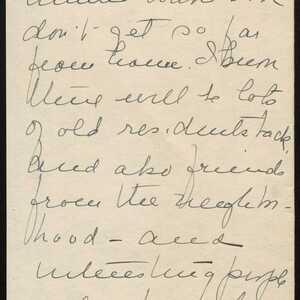 don't get so far
from home. I know
there will be lots
of old residents back,
and also friends
from the neighbor-
hood - and
interesting people